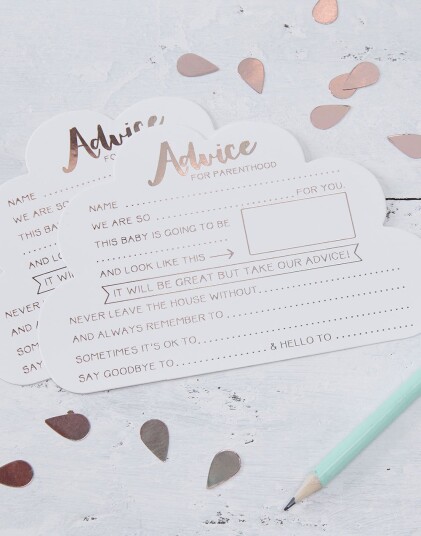 Advice
FOR PARENTHOOD
NAME
WE ARE SO FOR YOU.
THIS BABY IS GOING TO BE
AND LOOK LIKE THIS
IT WILL BE GREAT BUT TAKE OUR ADVICE!
NEVER LEAVE THE HOUSE WITHOUT
AND ALWAYS REMEMBER TO
SOMETIMES IT'S OK TO
SAY GOODBYE TO & HELLO TO
Advice
FO
NAME
WE ARE SO
THIS BABY
AND LO
IT WI
NEVER
AND A
SOM
SAY